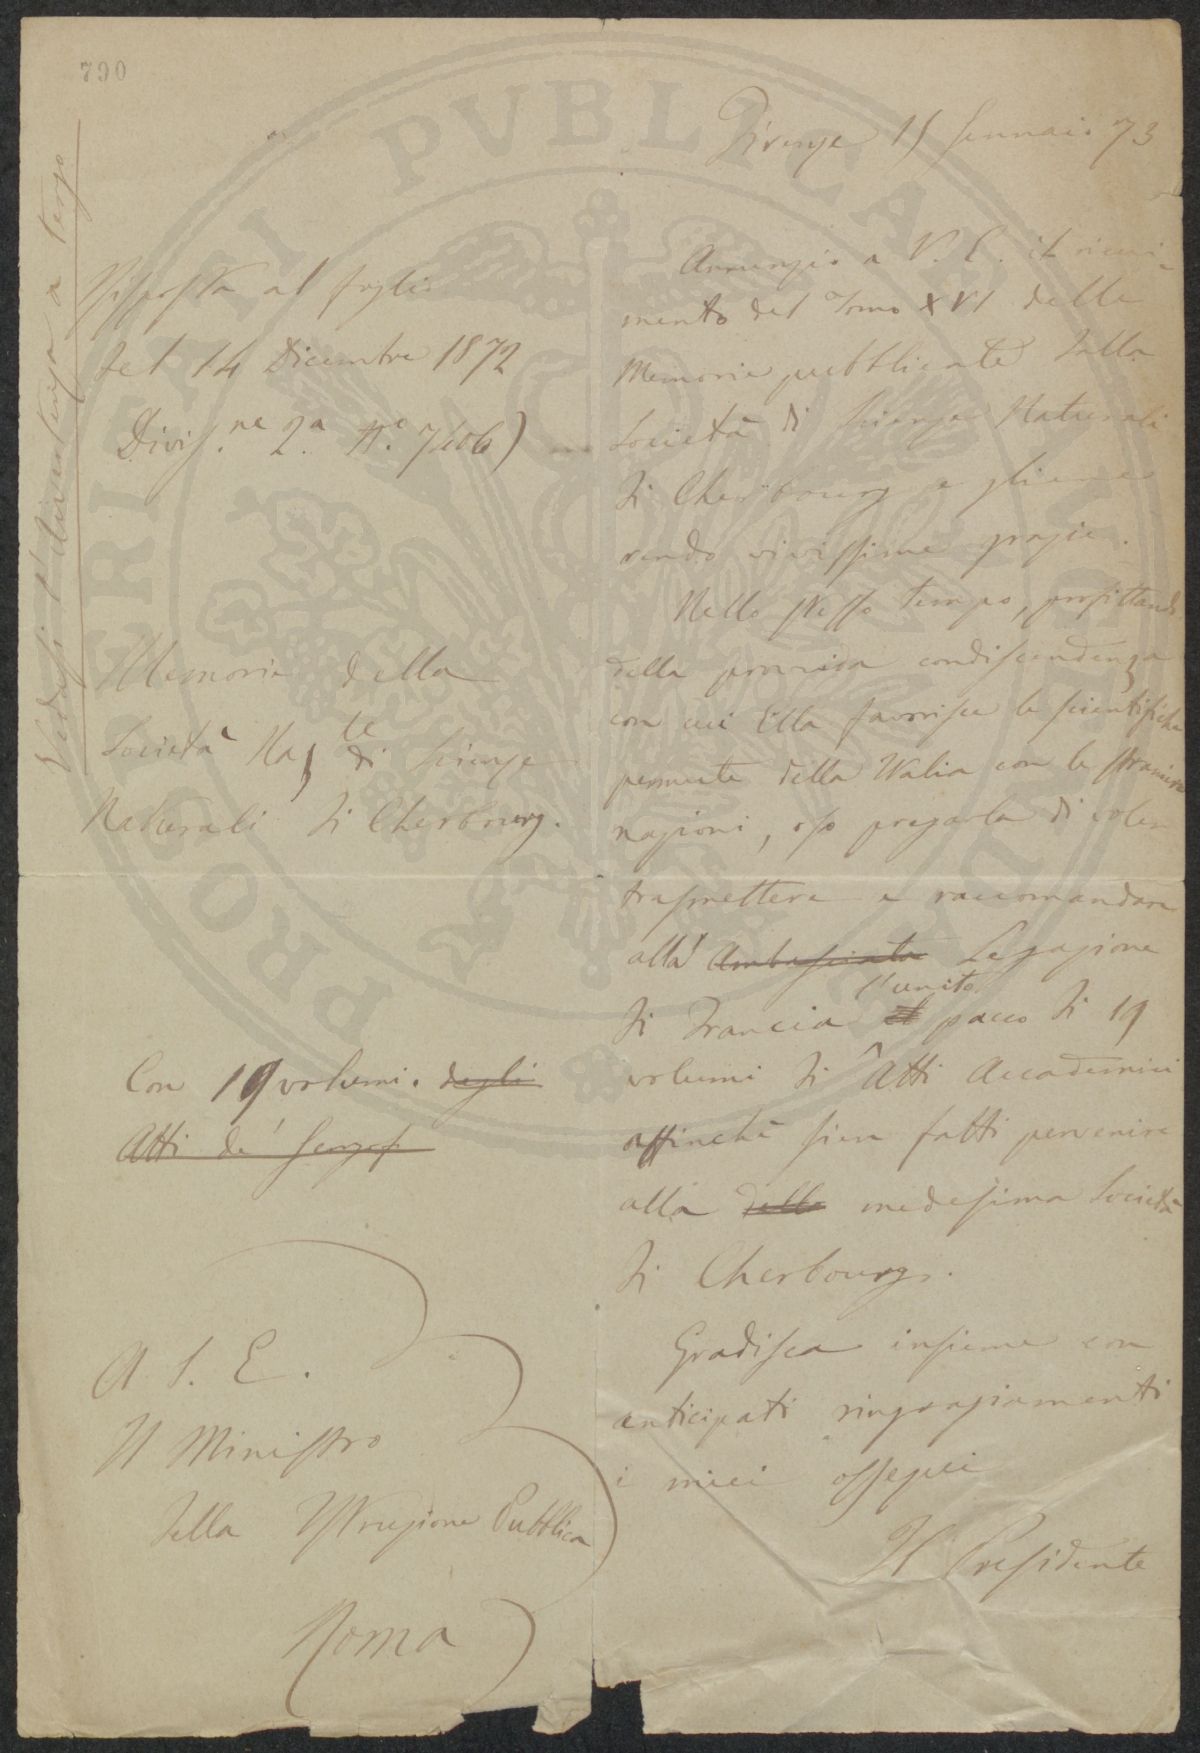 790
Firenze 15 Gennaio 73
Vedasi l'avvertenza a tergo
Risposta al foglio
del 14 Dicembre 1872
Divis.ne 2a. N.o 7606)
Memorie della
Società Na.le di Scienze
Naturali di Cherbourg.
Con 19 volumi. degli
Atti de'
A. S. E.
Il Ministro
della Istruzione Pubblica
Roma
Annunzio a V. E. il ricevi-
mento del Tomo XVI delle
Memorie pubblicate dalla
Società di Scienze Naturali
di Cherbourg e gliene
rendo vivissime grazie.
Nello stesso tempo, profittando
della condiscendenza
con cui Ella favorisce le scientifiche
permute della Italia con le straniere
nazioni, oso pregarla di voler
trasmettere e raccomandare
alla Ambasciata Legazione
di Francia il l'unito pacco di 19
volumi di Atti Accademici
affinchè sien fatti pervenire
alla della medesima Società
di Cherbourg.
Gradisca insieme con
anticipati ringraziamenti
i miei ossequi
Il Presidente
PROSPERITATI PVBLICAE AVGENDAE